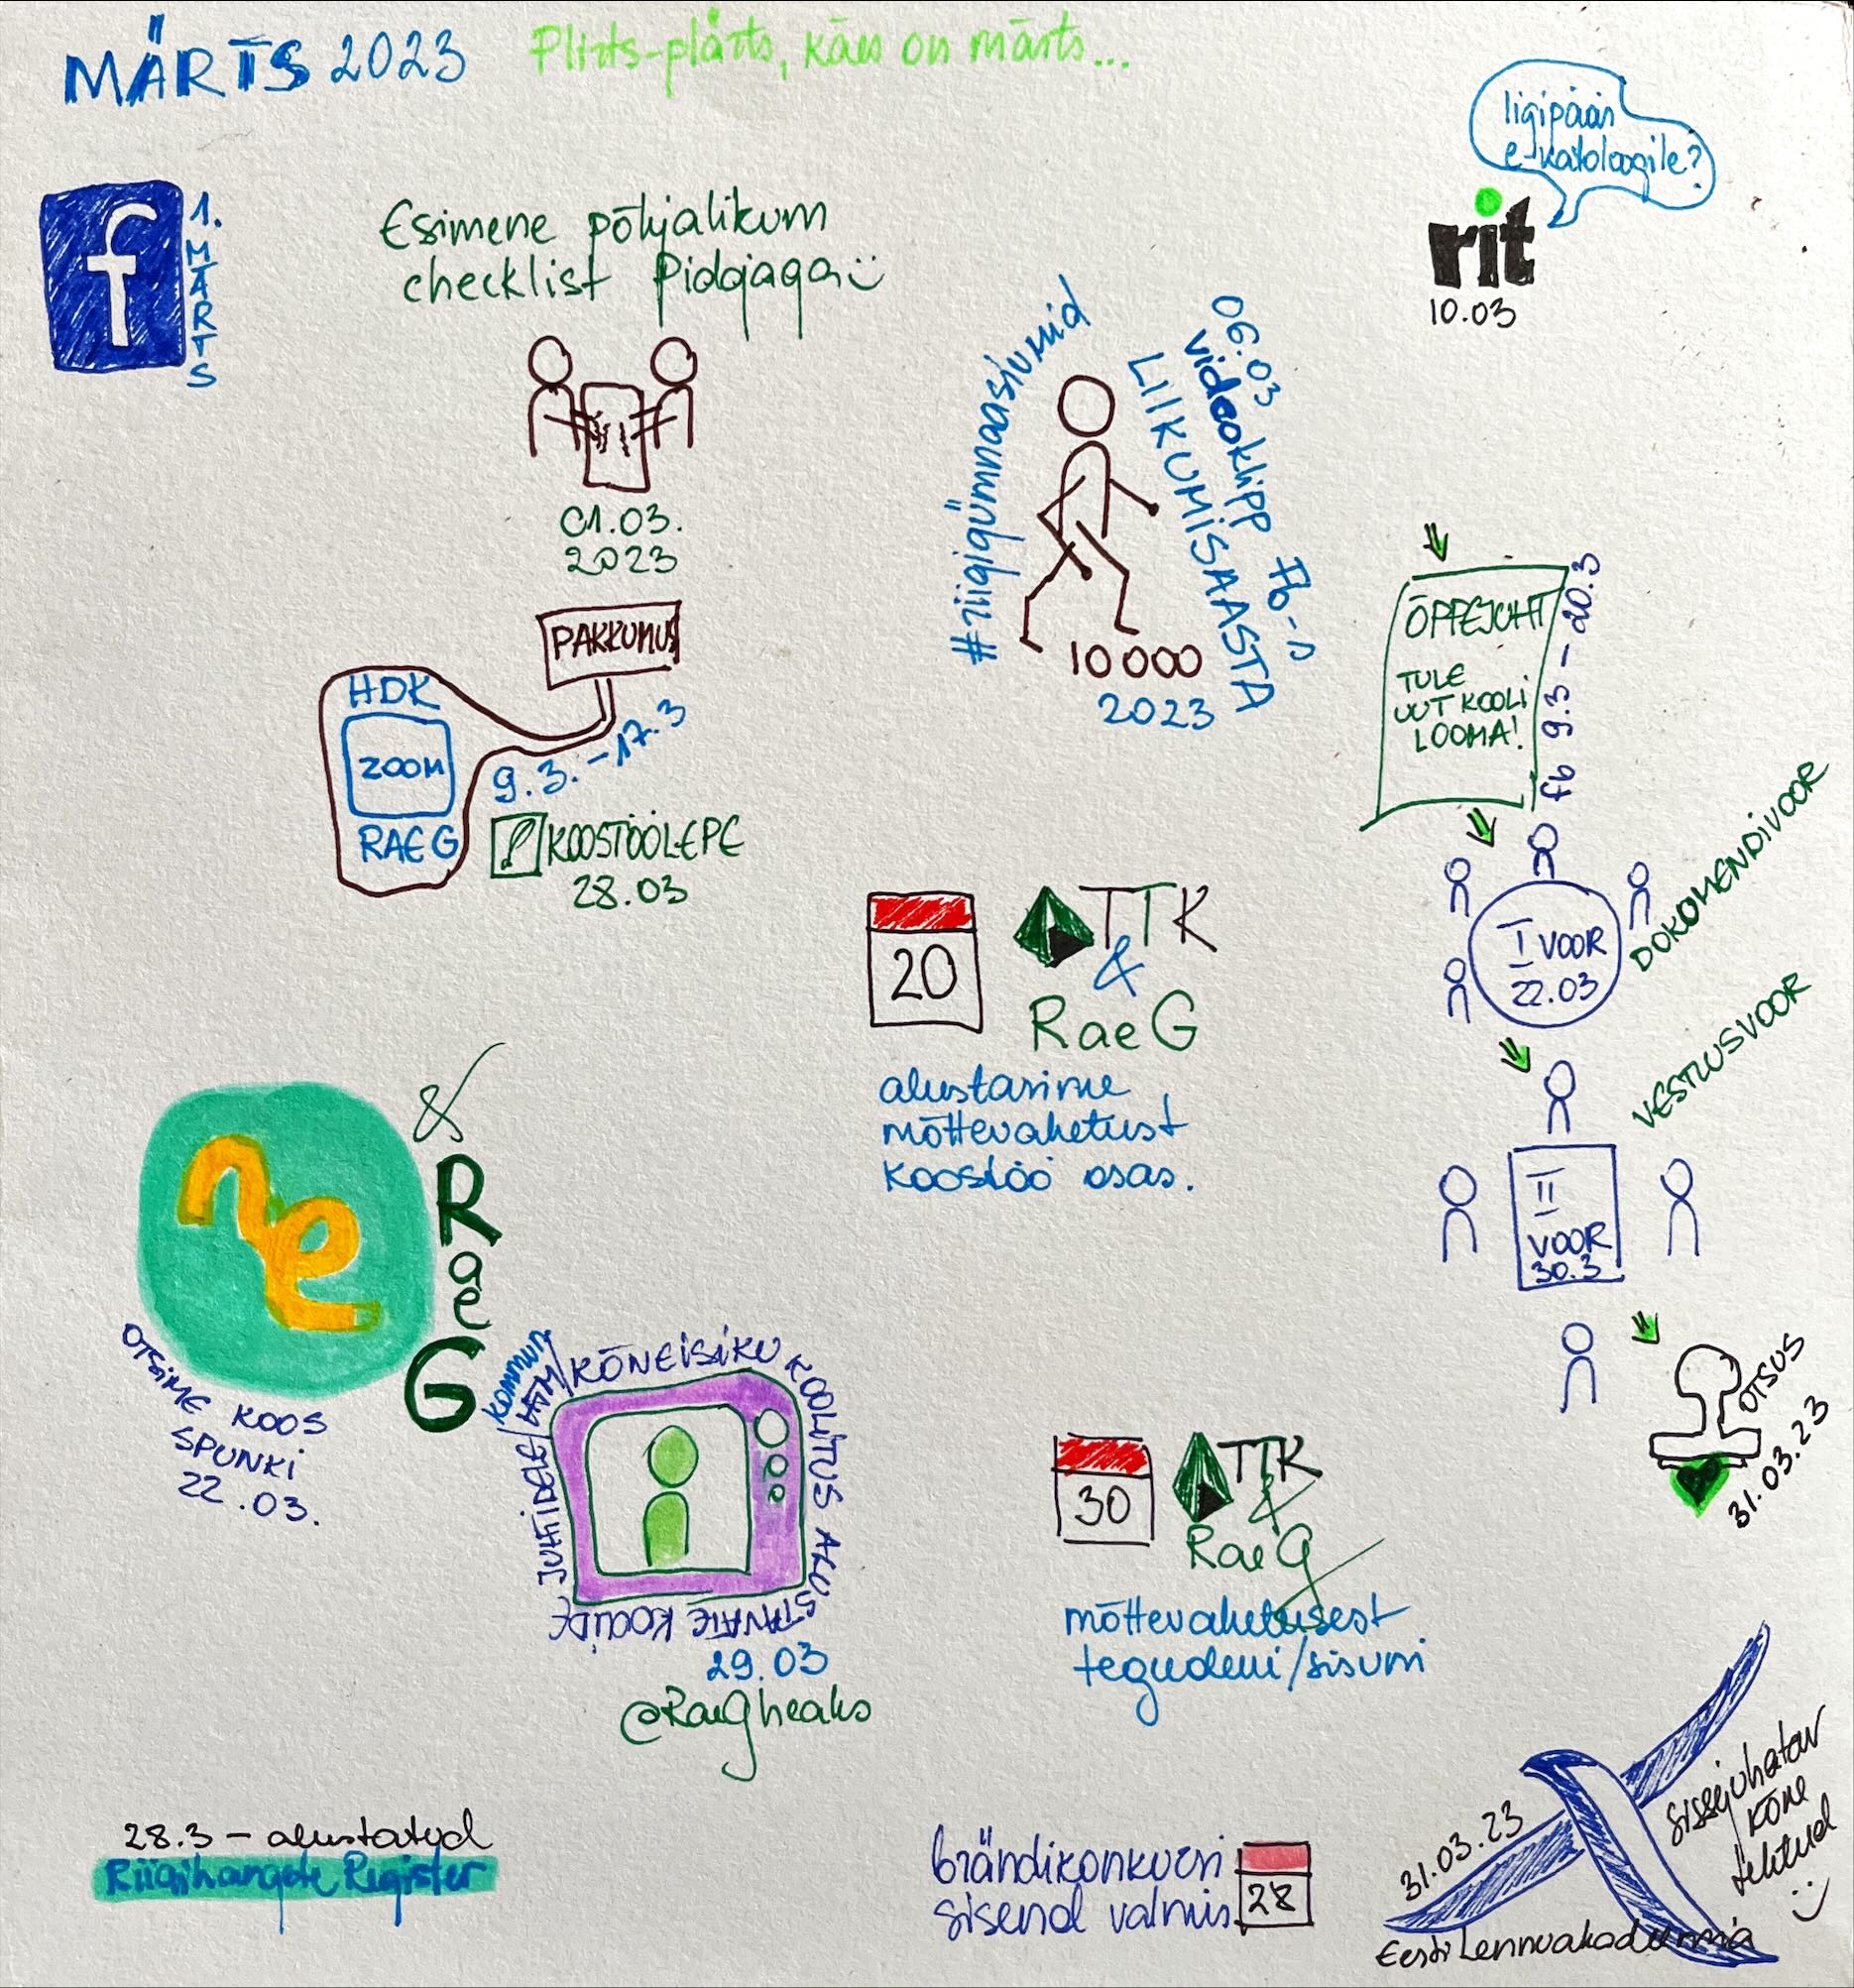 MÄRTS 2023
Plirts-plärts, käes on märts...
ligipääs
e-kataloogile?
rit
10.03
f
1. MÄRTS
Esimene põhjalikum
checklist Pidajaga
01.03.
2023
#riigigümnaasiumid
06.03
videoklipp Fb-s
LIIKUMISAASTA
10 000
2023
PAKKUMUS
HDK
ZOOM
RAE G
9.3. - 17.3
KOOSTÖÖLEPE
28.03
ÕPPEJUHT
TULE
UUT KOOLI
LOOMA!
fb 9.3 - 20.3
I VOOR
22.03
DOKUMENDIVOOR
II
VOOR
30.3
VESTLUSVOOR
OTSUS
31.03.23
20
TTK
&
RaeG
alustasime
mõttevahetust
koostöö osas.
ne
&
RaeG
OTSIME KOOS
SPUNKI
22.03.
KÕNEISIKU KOOLITUS ALUSTAVATE KOOLIDE JUHTIDELE/
kommun
29.03
@RaeGheaks
30
TTK
&
RaeG
mõttevahetusest
tegudeni/sisuni
28.3 - alustatud
Riigihangete Register
brändikonkursi
sisend valmis
28
31.03.23
sissejuhatav
kõne
tehtud
Eesti Lennuakadeemia